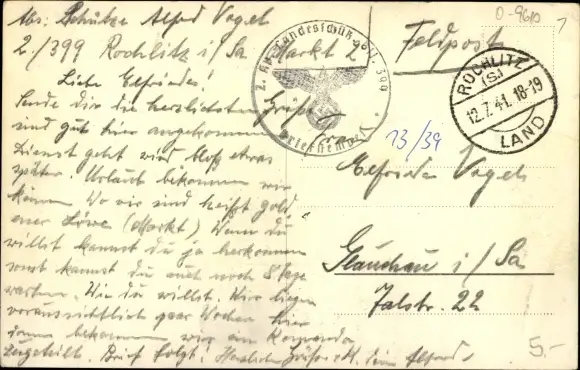 Abs: Schütze Alfred Vogel
2./399 Rochlitz i/Sa Markt 2
Feldpost
0-9610
2. Kp. Landesschütz. 399
Briefstempel
ROCHLITZ
(S.)
12.7.41. 18-19
LAND
13/39
Elfriede Vogel
Glauchau i/Sa
Talstr. 22
5.-
Liebe Elfriede!
Sende dir die herzlichsten Grüße
sind gut hier angekommen
Dienst geht wird bloß etwas
später. Urlaub bekommen wir
können Wo wir sind heißt gold
ener Löwe (Markt) Wenn du
willst kannst du ja herkommen
sonst kannst du auch noch 8 Tage
warten. Wie du willst. Wir liegen
voraussichtlich paar Wochen hier
dann bekommen wir ein Komando
zugeteilt. Brief folgt! Herzlichen Grüße dein Alfred.